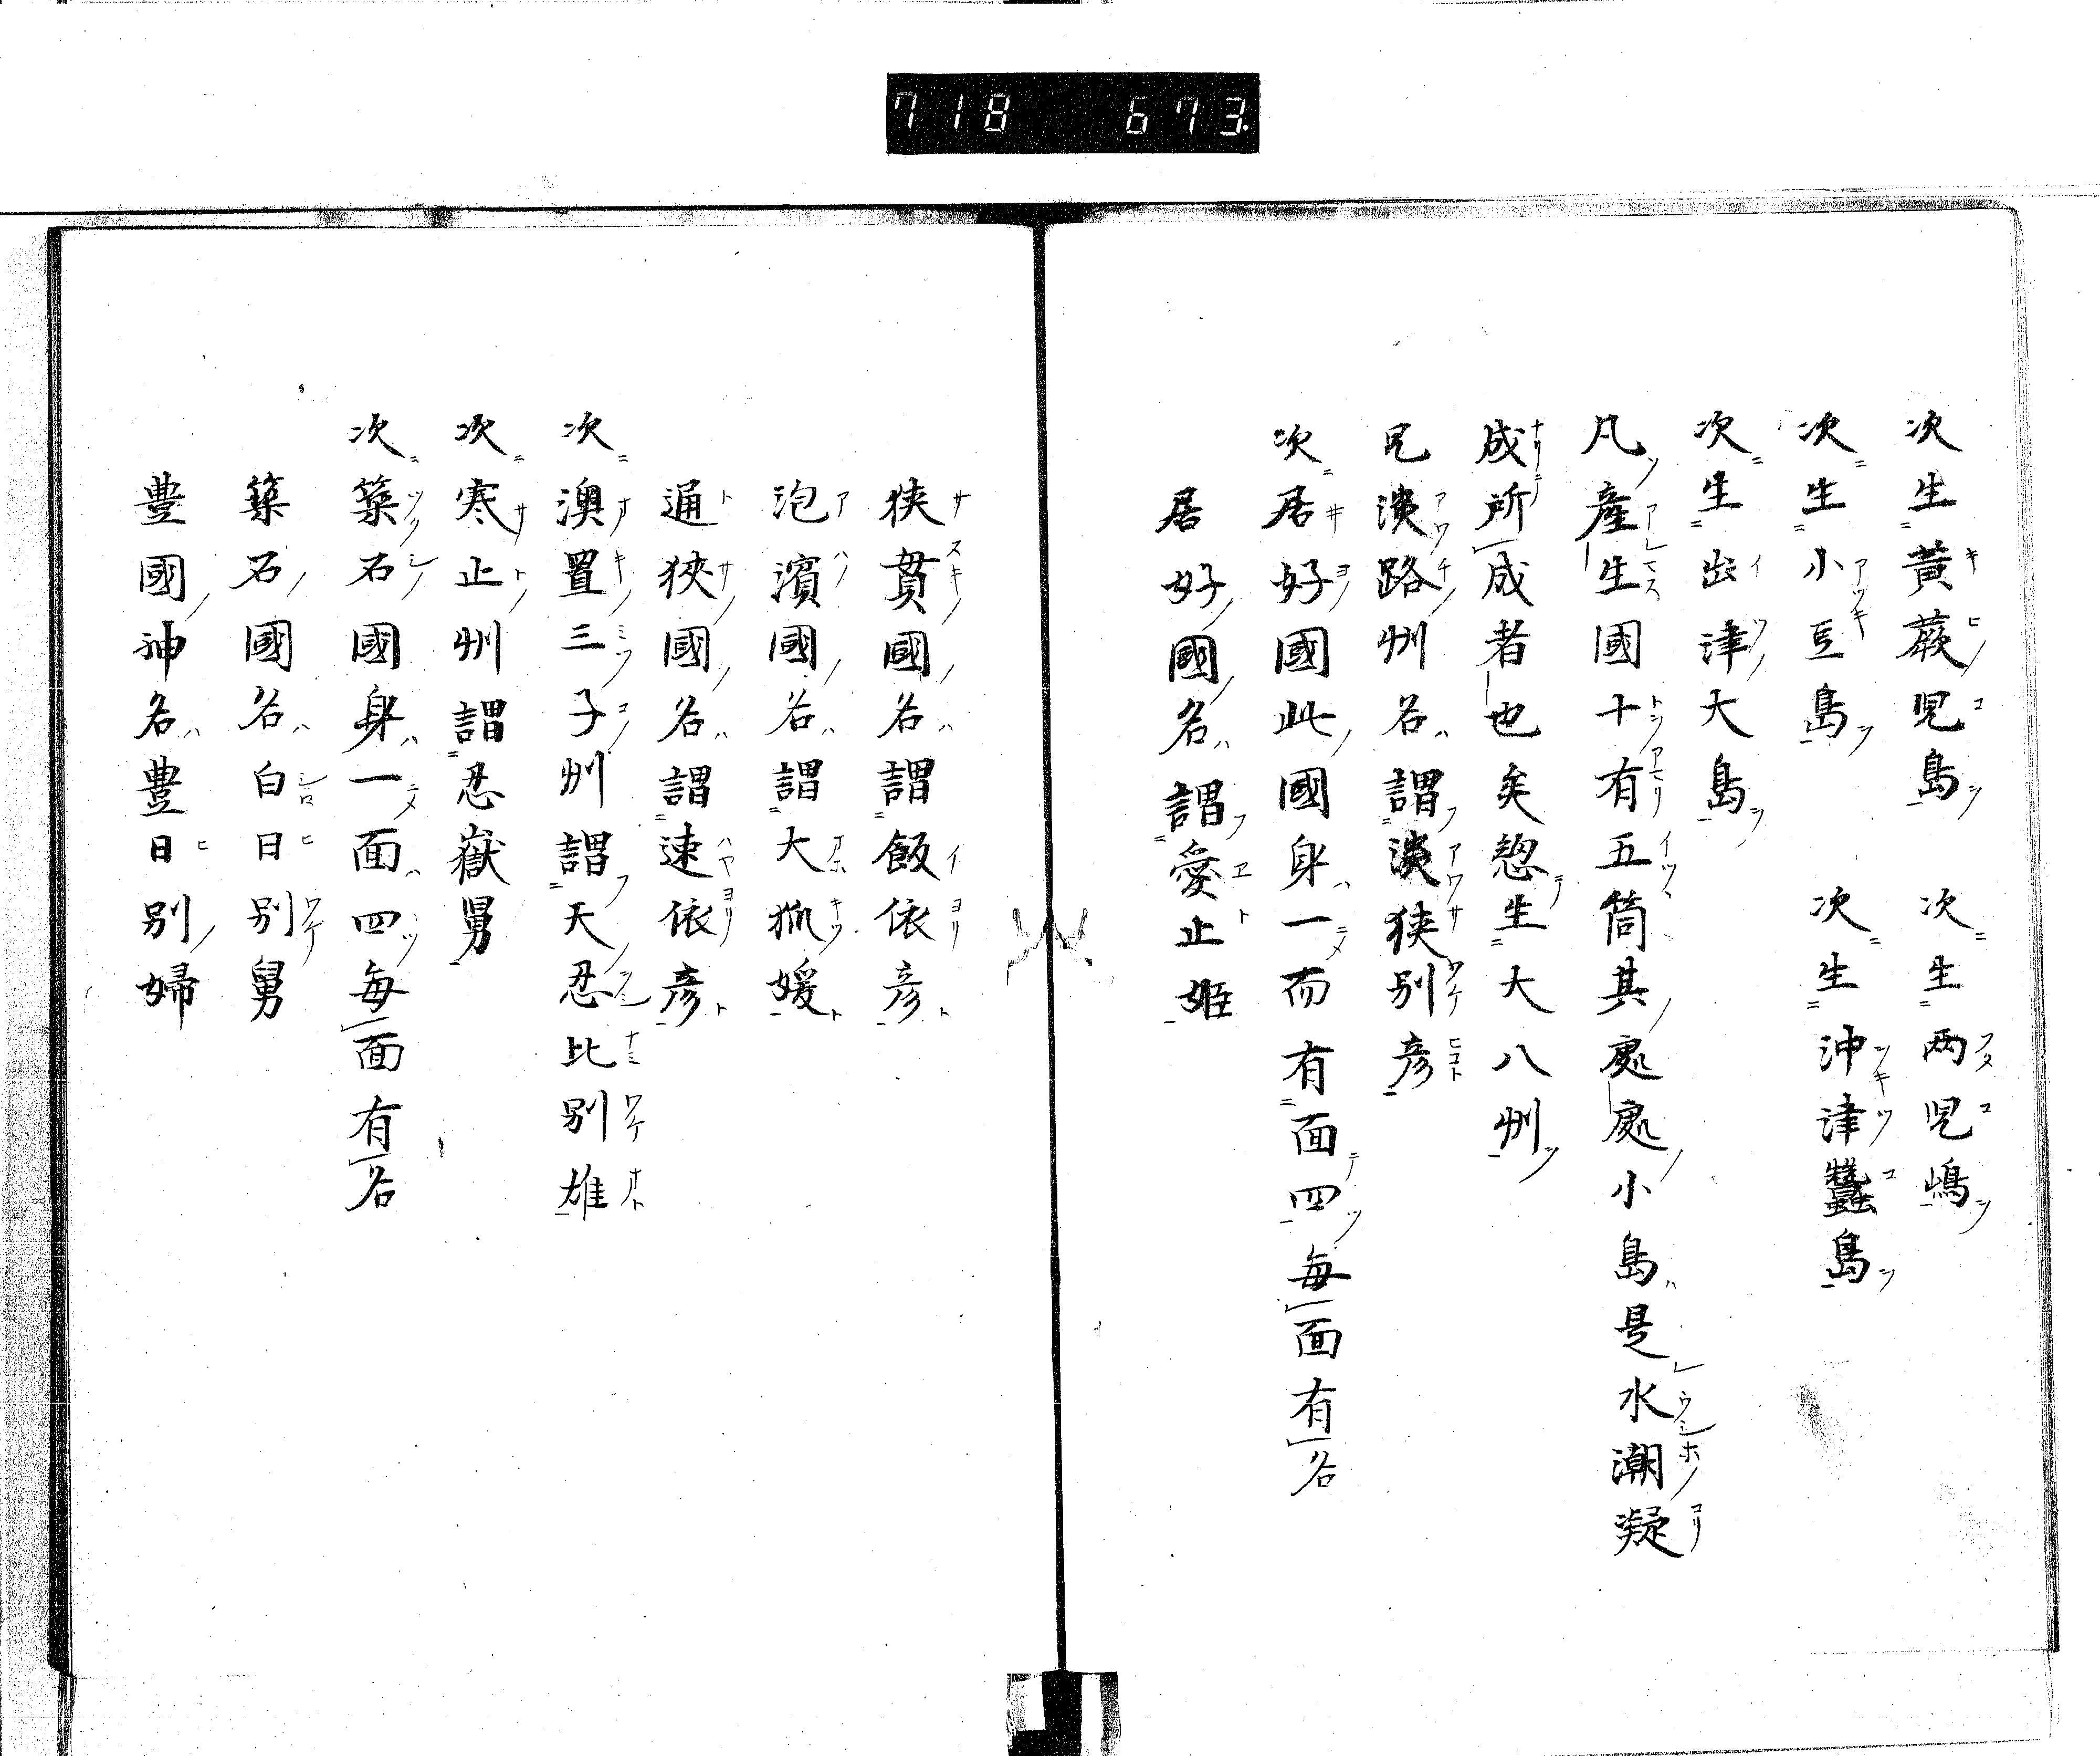 718 673.
次生黄蕨児島 次生両児嶋
次生小豆島 次生沖津蠶島
次生出津大島
凡産生國十有五箇其處處小島是水潮凝
成所成者也矣惣生大八州
兄淡路州名謂淡狭別彦
次居好國此國身一而有面四毎面有名
居好國名謂愛止姫
狭貫國名謂飯依彦
泡濱國名謂大狐媛
通狭國名謂速依彦
次澳置三子州謂天忍比別雄
次寒止州謂忍嶽男
次築石國身一面四毎面有名
築石國名白日別男
豊國神名豊日別婦